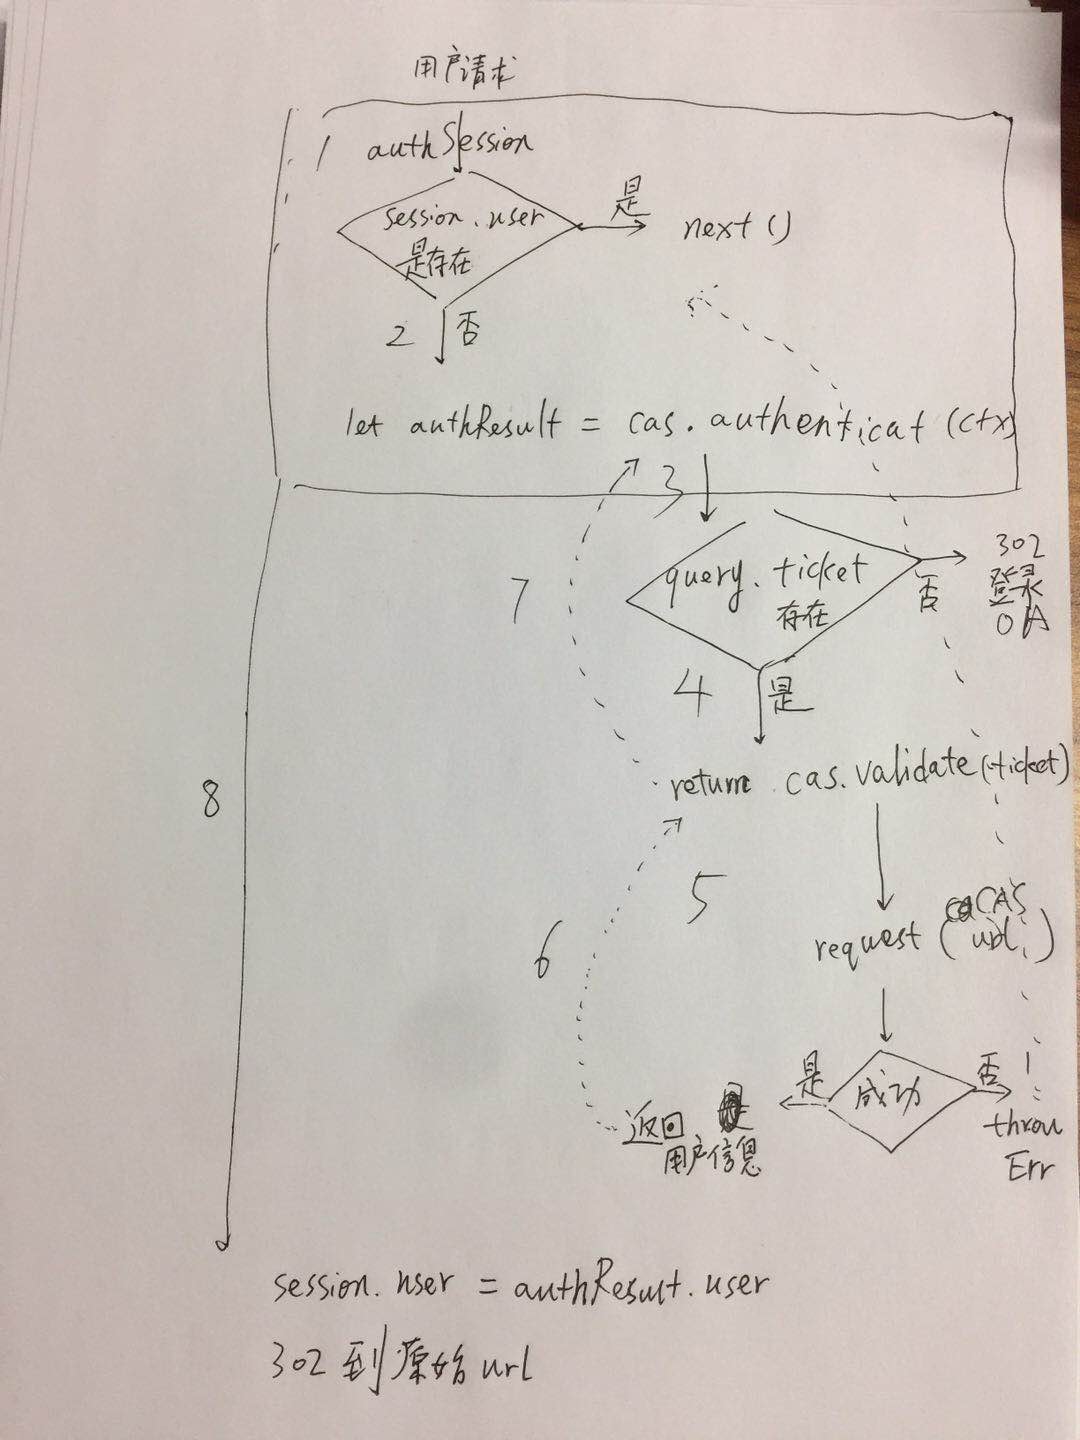 用户请求
1 authSession
session.user
是存在
是
next()
2 否
let authResult = cas.authenticat(ctx)
3
query.ticket
存在
否
302
登录
OA
7
4 是
return cas.validate(ticket)
8
5
CAS
request( url, )
6
成功
是
否
throw
Err
返回
用户信息
session.user = authResult.user
302 到原始 url